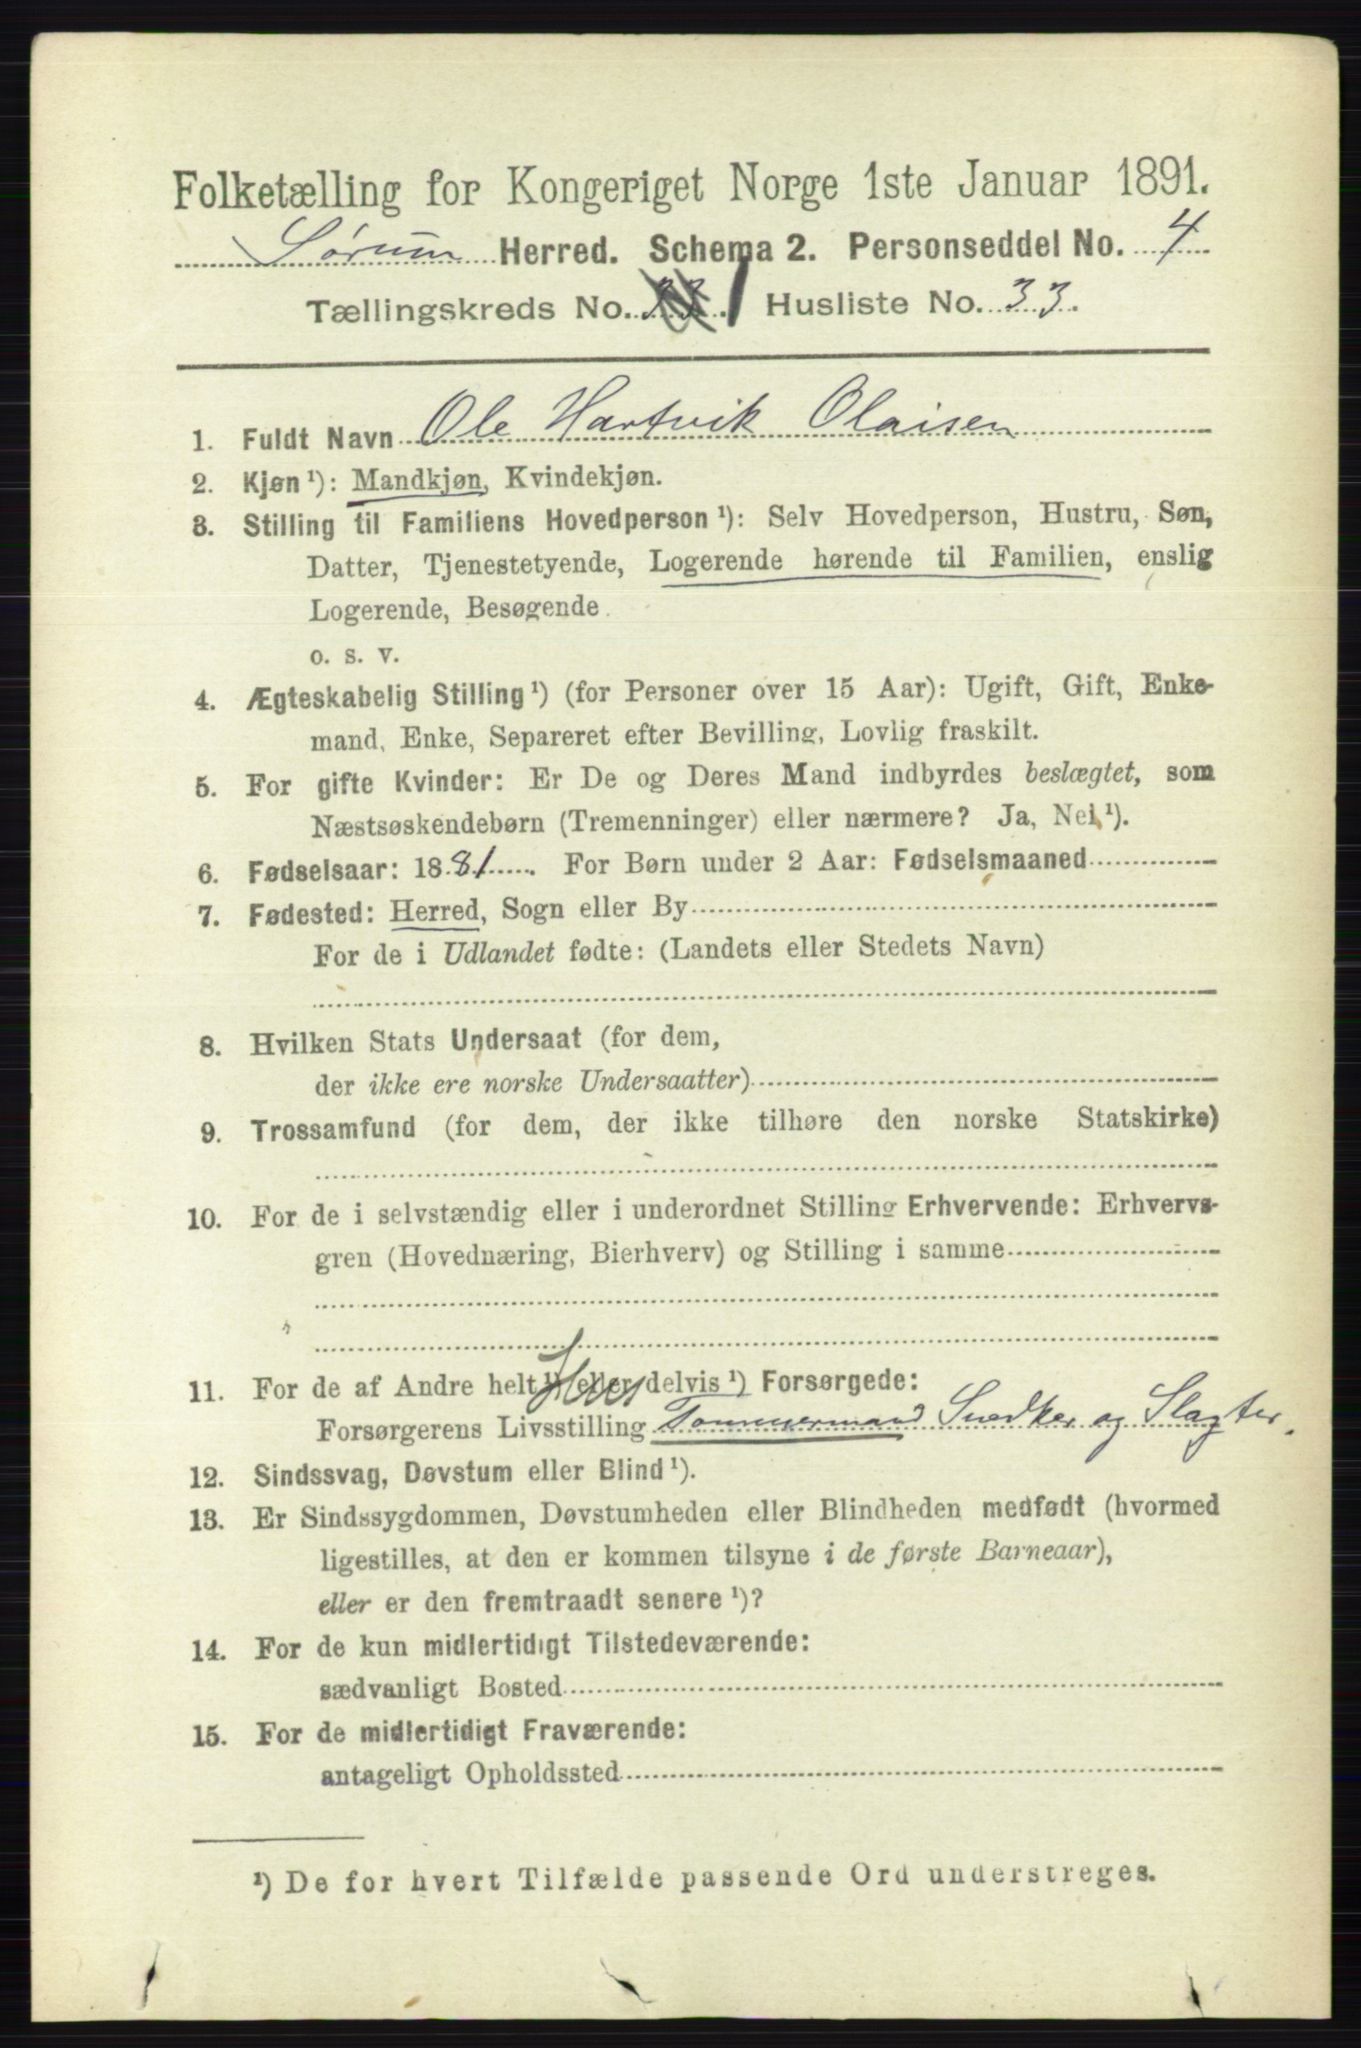 Folketælling for Kongeriget Norge 1ste Januar 1891.
Sørum Herred. Schema 2. Personseddel No. 4
Tællingskreds No. 33 1 Husliste No. 33.
1. Fuldt Navn Ole Hartvik Olaisen
2. Kjøn ¹): Mandkjøn, Kvindekjøn.
3. Stilling til Familiens Hovedperson ¹): Selv Hovedperson, Hustru, Søn,
Datter, Tjenestetyende, Logerende hørende til Familien, enslig
Logerende, Besøgende
o. s. v.
4. Ægteskabelig Stilling ¹) (for Personer over 15 Aar): Ugift, Gift, Enke-
mand, Enke, Separeret efter Bevilling, Lovlig fraskilt.
5. For gifte Kvinder: Er De og Deres Mand indbyrdes beslægtet, som
Næstsøskendebørn (Tremenninger) eller nærmere? Ja, Nei ¹).
6. Fødselsaar: 1881. For Børn under 2 Aar: Fødselsmaaned
7. Fødested: Herred, Sogn eller By
For de i Udlandet fødte: (Landets eller Stedets Navn)
8. Hvilken Stats Undersaat (for dem,
der ikke ere norske Undersaatter)
9. Trossamfund (for dem, der ikke tilhøre den norske Statskirke)
10. For de i selvstændig eller i underordnet Stilling Erhvervende: Erhvervs-
gren (Hovednæring, Bierhverv) og Stilling i samme
11. For de af Andre helt ¹) eller delvis ¹) Forsørgede:
Forsørgerens Livsstilling Tømmermand Snedker og Slagter.
12. Sindssvag, Døvstum eller Blind ¹).
13. Er Sindssygdommen, Døvstumheden eller Blindheden medfødt (hvormed
ligestilles, at den er kommen tilsyne i de første Barneaar),
eller er den fremtraadt senere ¹)?
14. For de kun midlertidigt Tilstedeværende:
sædvanligt Bosted
15. For de midlertidigt Fraværende:
antageligt Opholdssted
¹) De for hvert Tilfælde passende Ord understreges.